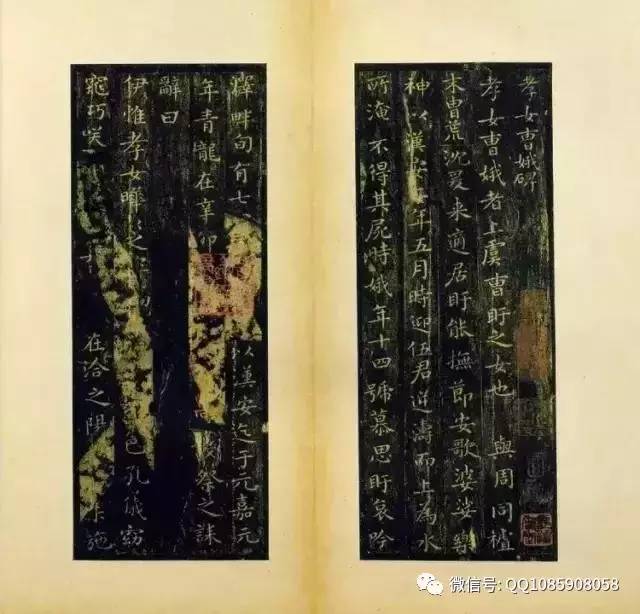 孝女曹娥碑
孝女曹娥者上虞曹盱之女也 與周同
末曹荒沈爰来適居盱能撫節安歌婆娑樂
神以漢安二年五月時迎伍君逆濤而上為水
所淹不得其屍時娥年十四號慕思盱哀吟
澤畔旬有七 以漢安迄于元嘉元
年青龍在辛卯 祭之誄
辭曰
伊惟孝女曄 之 色孔儀窈
窕巧笑 在洽之陽 施
微信号: QQ1085908058